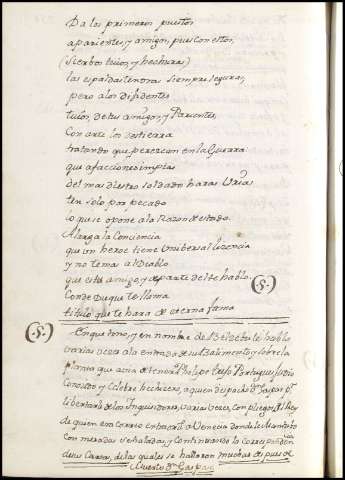 Da los primeros puestos
a parientes, y amigos, pues con estos,
(sierbos tuios, y hechuras)
las espaldas tendras siempre seguras,
pero a los disidentes
tuios, de tus amigos, y Parientes,
Con arte los destierra
tratando que perezcan en la Guerra
que a facciones impias
del mas diestro soldado haras Urias
ten solo por pecado
lo que se opone a la Razon de estado.
Alarga la Conciencia
que un heroe tiene Universal licencia
y no temas al Diablo
que es tu amigo, y de parte de el te hablo.
Conde Duque te llama
titulo que te hara de eterna fama
(S.)
(S.) En que tono, y en nombre de el Diablo le hablo
varias veces a la entrada de su Balimento, y sobre la
planta que avia de tener Phelipe Portugues Judio
Conosido y Celebre hechicero, a quien despacho Dn. Gaspar pa.
libertarlo de los Inquisidores, varias veces, con pliegos del Rey
de quien era correo extra a Venecia donde le mantubo
con mesadas señaladas, y continuando la correspondencia
de sus Cartas, de las quales se hallaron muchas despues de
Muerto Dn. Gaspar